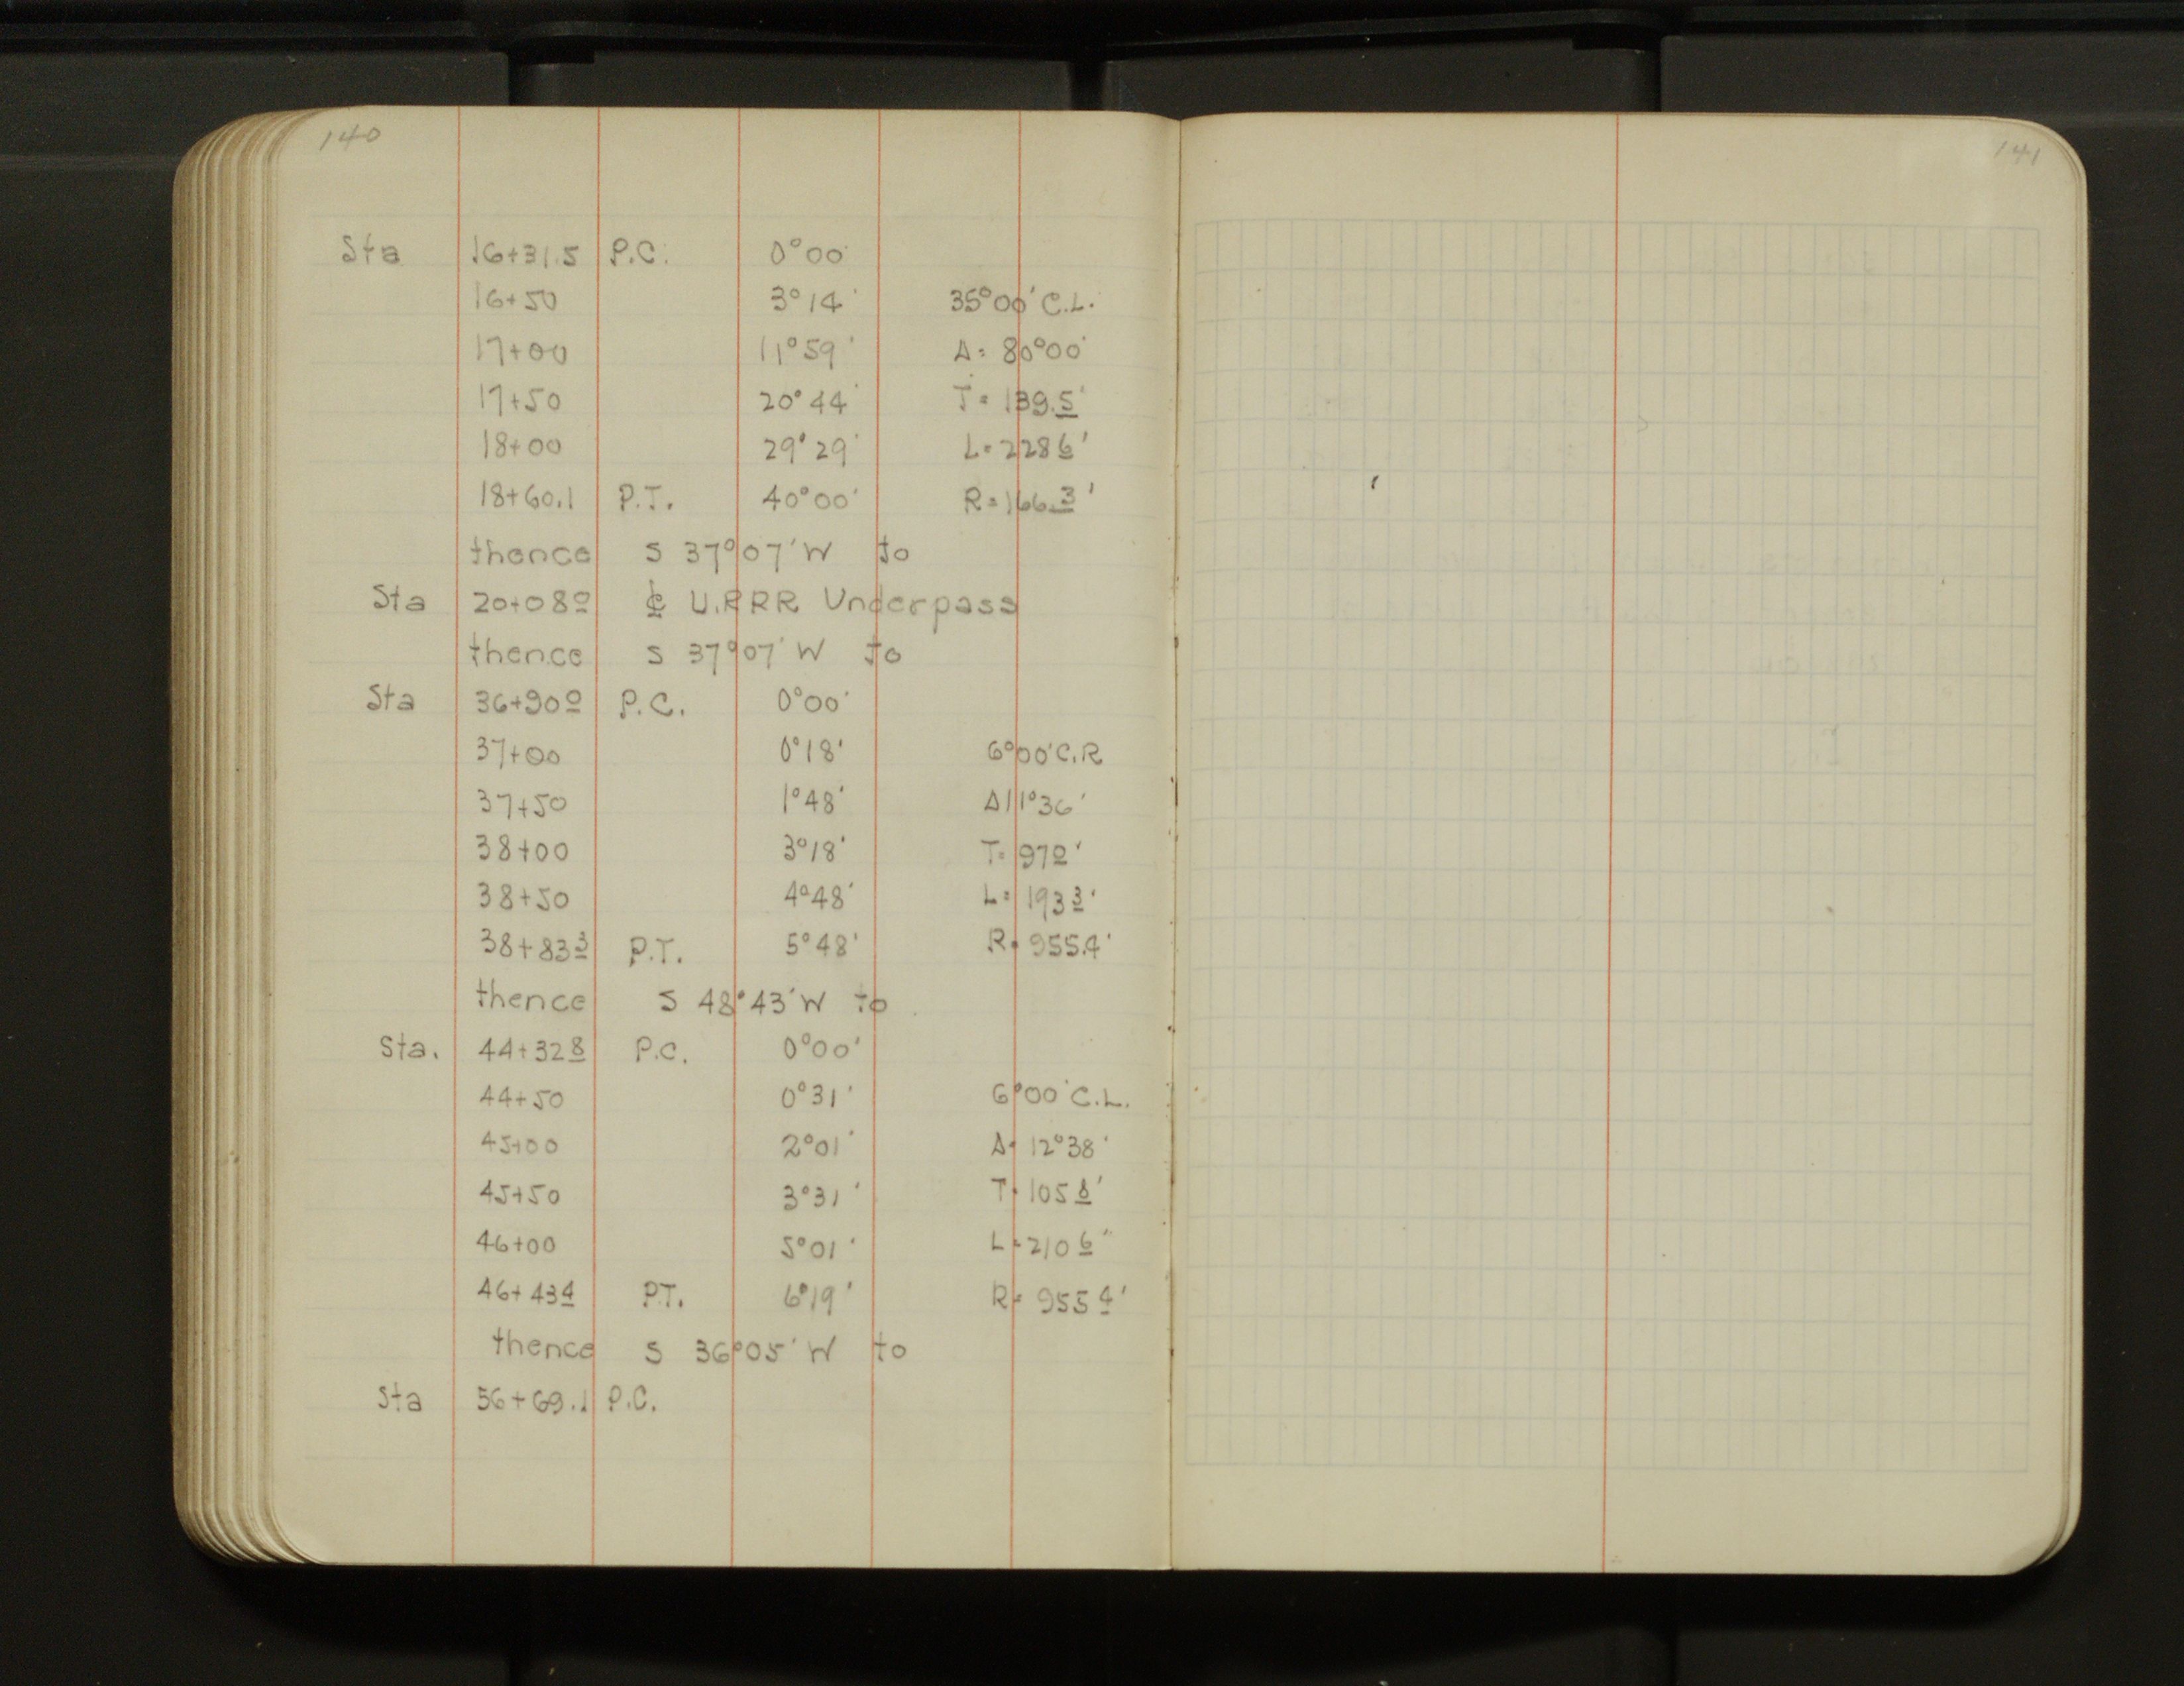 140
Sta 16+31.5 P.C. 0°00'
16+50 3°14' 35°00' C.L.
17+00 11°59' Δ= 80°00'
17+50 20°44' T= 139.5'
18+00 29°29' L= 2286'
18+60.1 P.T. 40°00' R= 166.3'
thence S 37°07' W to
Sta 20+080 ℄ U.P.R.R Underpass
thence S 37°07' W to
Sta 36+900 P.C. 0°00'
37+00 0°18' 6°00' C.R
37+50 1°48' Δ 11°36'
38+00 3°18' T= 970'
38+50 4°48' L= 1933'
38+833 P.T. 5°48' R= 955.4'
thence S 48°43' W to
Sta. 44+328 P.C. 0°00'
44+50 0°31' 6°00' C.L.
45+00 2°01' Δ= 12°38'
45+50 3°31' T= 1058'
46+00 5°01' L= 2106"
46+434 P.T. 6°19' R= 9554'
thence S 36°05' W to
Sta 56+69.1 P.C.
141